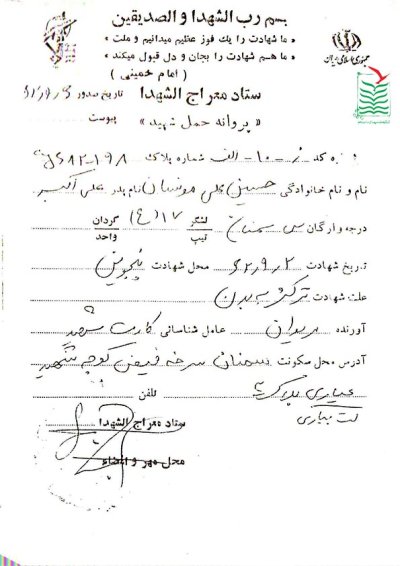 بسم رب الشهدا و الصدیقین
« ما شهادت را یك فوز عظیم میدانیم و ملت »
« ما هم شهادت را بجان و دل قبول میکند »
( امام خمینی )
جمهوری اسلامی ایران
ستاد معراج الشهدا
تاریخ صدور
« پروانه حمل شهید »
پیوست
کد ز - ۱۰ - الف شماره پلاک
نام و نام خانوادگی حسینعلی نام پدر علی اکبر
درجه و ارگان سمنان لشگر تیپ ۱۷ (ع) گردان واحد
تاریخ شهادت ۶۲٫۹٫۲ محل شهادت پنجوین
علت شهادت ترکش به بدن
آورنده مریوان عامل شناسائی کارت شهید
آدرس محل سکونت سمنان کوچه شهید
عیاری پلاک تلفن
ستاد معراج الشهدا
محل مهر و امضاء